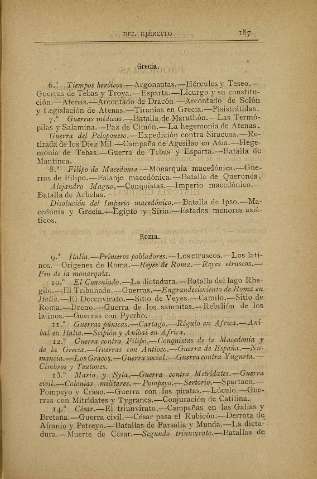 DEL EJÉRCITO 187
Grecia.
6.° Tiempos heróicos.—Argonautas.—Hércules y Teseo.—
Guerras de Tebas y Troya.—Esparta.—Licurgo y su constitu-
ción.—Atenas.—Arcontado de Dracón.—Arcontado de Solón
y Legislación de Atenas.—Tiranías en Grecia.—Pisistrátidas.
7.° Guerras médicas.—Batalla de Marathón.—Las Termó-
pilas y Salamina.—Paz de Cimón.—La hegemonía de Atenas.
Guerra del Peloponeso.—Expedición contra Siracusa.—Re-
tirada de los Diez Mil.—Campaña de Agesilao en Asia.—Hege-
monía de Tebas.—Guerra de Tebas y Esparta.—Batalla de
Mantinea.
8.° Filipo de Macedonia.—Monarquía macedónica.—Gue-
rras de Filipo.—Falanje macedónica.—Batalla de Queronea.
Alejandro Magno.—Conquistas.—Imperio macedónico.—
Batalla de Arbelas.
Disolución del Imperio macedónico.—Batalla de Ipso.—Ma-
cedonia y Grecia.—Egipto y Siria.—Estados menores asiá-
ticos.
Roma.
9.° Italia.—Primeros pobladores.—Los etruscos.—Los lati-
nos.—Orígenes de Roma.—Reyes de Roma.—Reyes etruscos.—
Fin de la monarquía.
10.° El Consulado.—La dictadura.—Batalla del lago Rhe-
gilo.—El Tribunado.—Guerras.—Engrandecimiento de Roma en
Italia.—El Decenvirato.—Sitio de Veyes.—Camilo.—Sitio de
Roma.—Breno.—Guerra de los samnitas.—Rebelión de los
latinos.—Guerras con Pyrrho.
11.° Guerras púnicas.—Cartago.—Régulo en Africa.—Aní-
bal en Italia.—Scipión y Aníbal en Africa.
12.° Guerra contra Filipo.—Conquistas de la Macedonia y
de la Grecia.—Guerras con Antíoco.—Guerra de España.—Nu-
mancia.—Los Gracos.—Guerra social.—Guerra contra Yugurta.—
Cimbros y Teutones.
13.° Mario y Syla.—Guerra contra Mitrídates.—Guerra
civil.—Colonias militares.—Pompeyo.—Sertorio.—Spartaco.—
Pompeyo y Craso.—Guerra con los piratas.—Lúculo.—Gue-
rras con Mitrídates y Tygranes.—Conjuración de Catilina.
14.° César.—El triunvirato.—Campañas en las Galias y
Bretaña.—Guerra civil.—César pasa el Rubicón.—Derrota de
Afranio y Petreyo.—Batallas de Farsalia y Munda.—La dicta-
dura.—Muerte de César.—Segundo triunvirato.—Batallas de